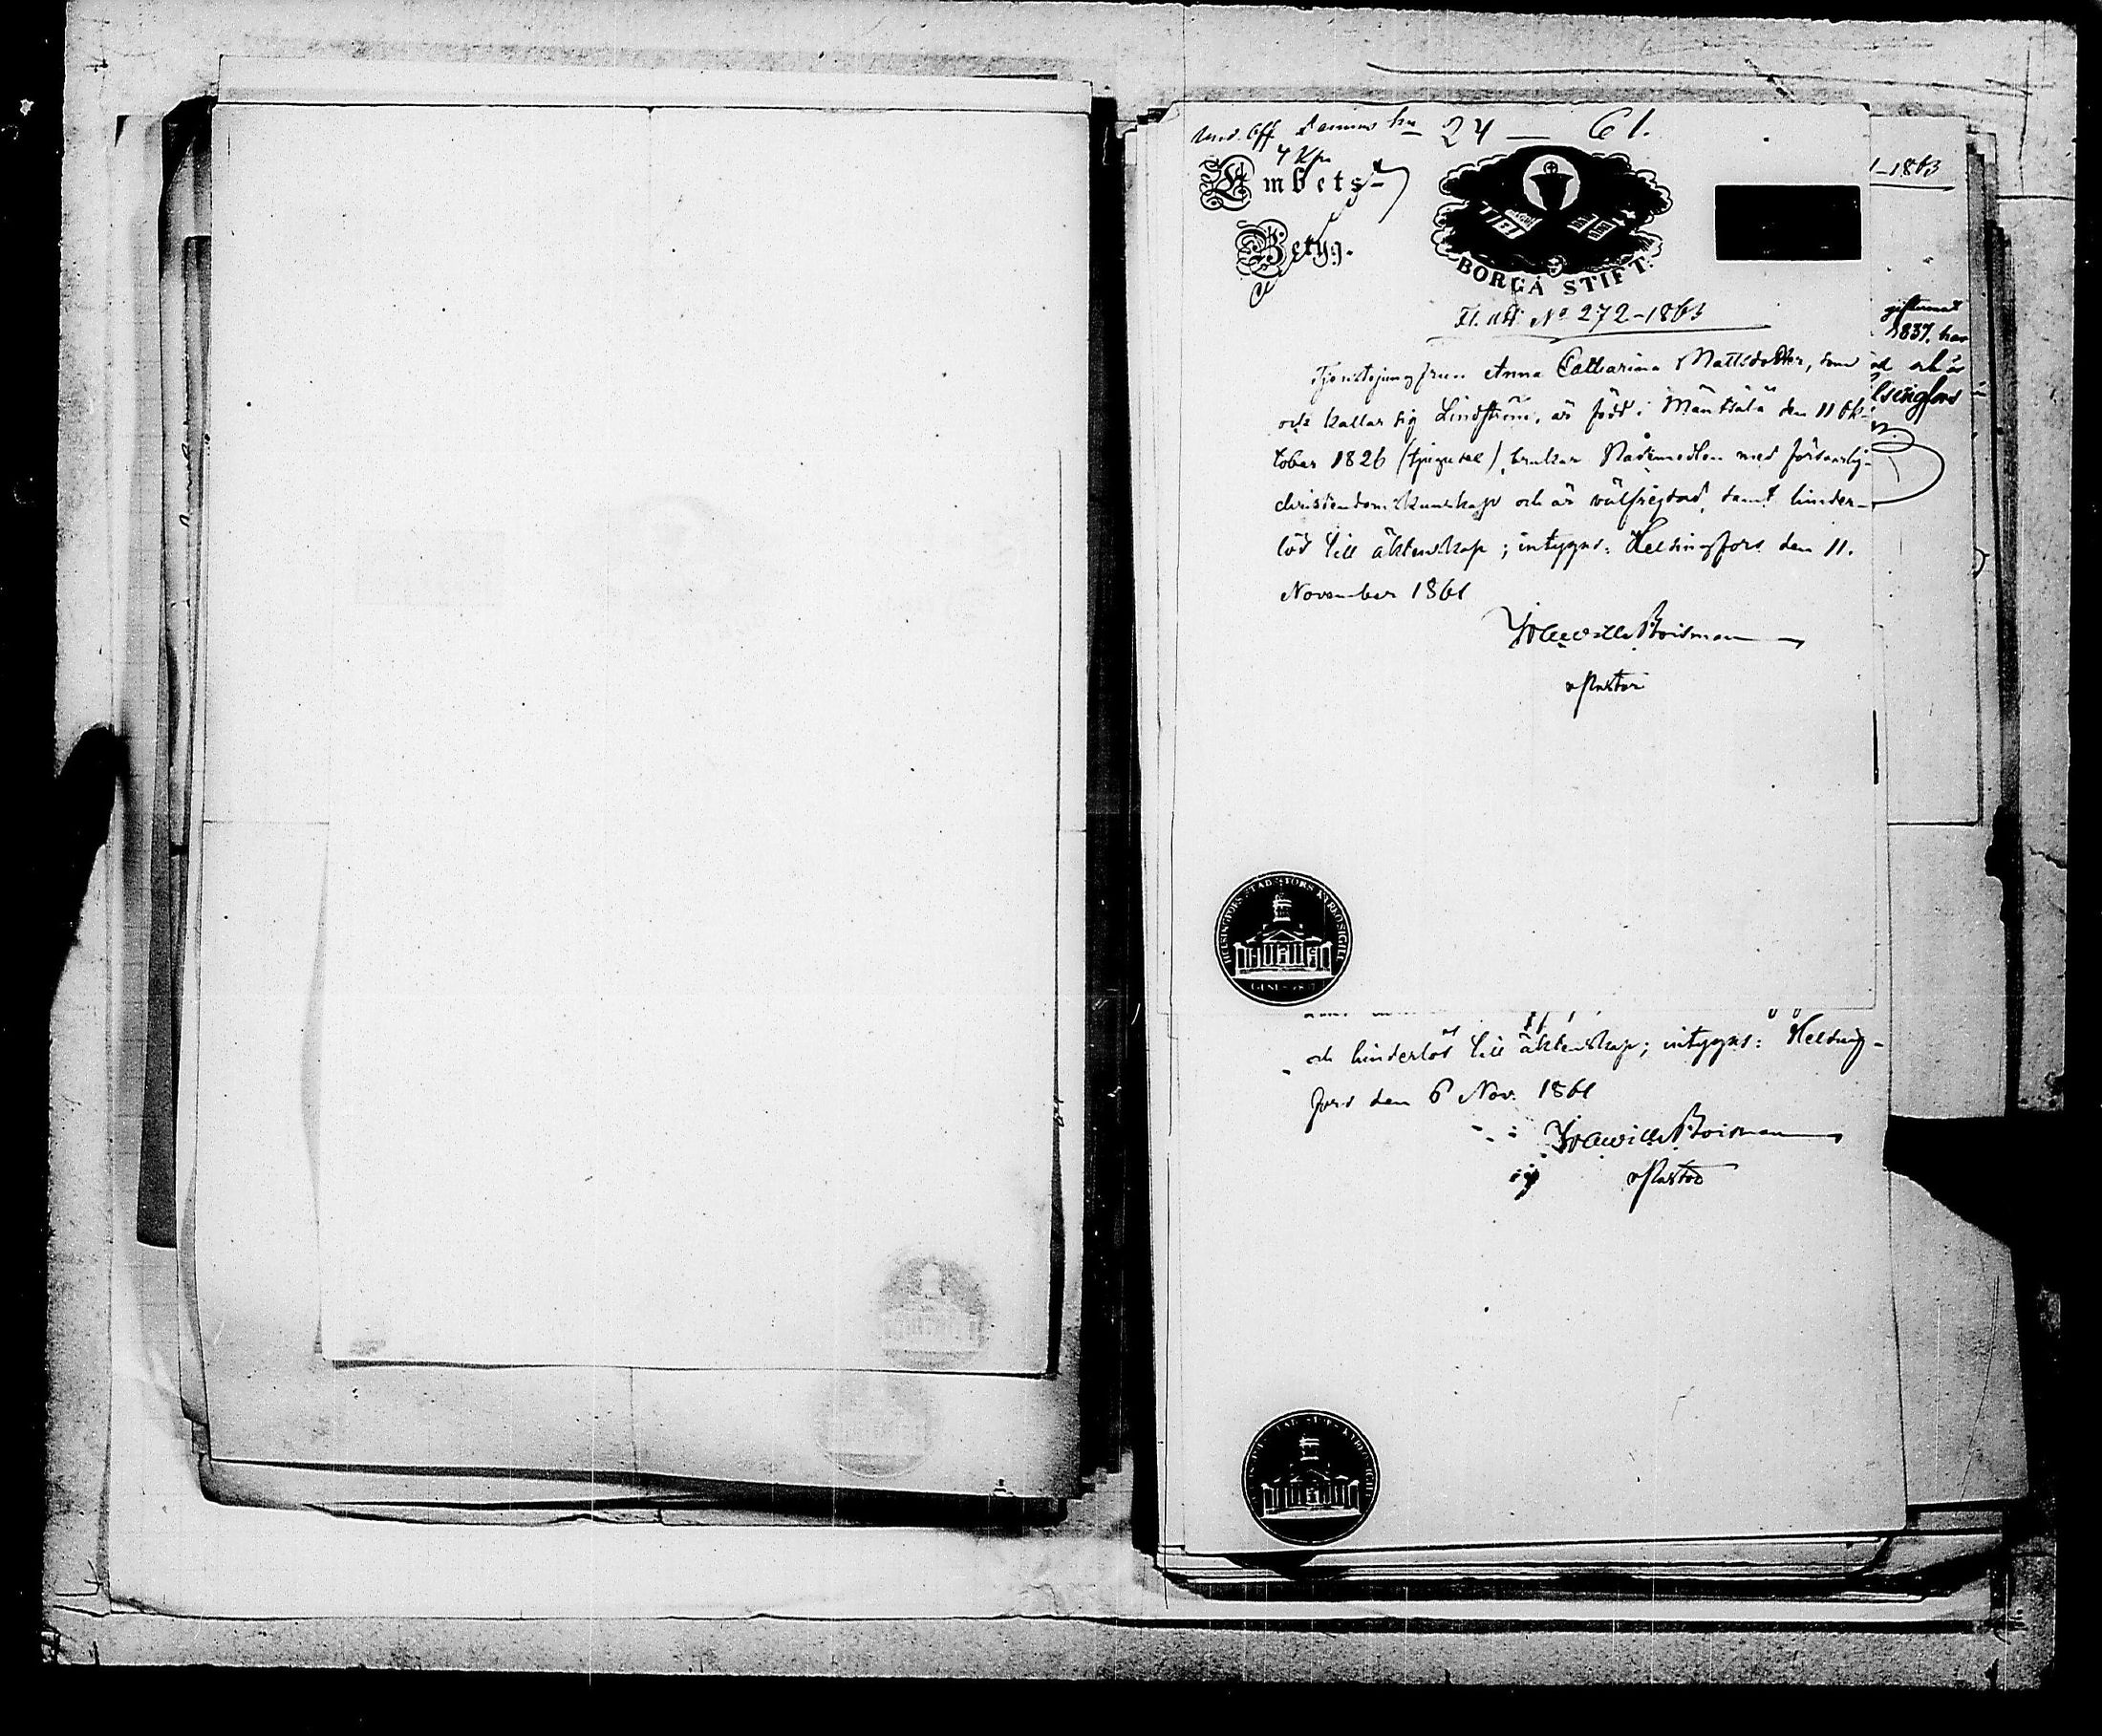 24 — 61.
4 Kp.
Embets-
Betyg.
BORGÅ STIFT.
Fl. att. No 272-1863
Tjenstejungfrun Anna Catharina Mattsdotter, som
ock kallar sig Lindström, är född i Mäntsälä den 11 Ok-
tober 1826 (tjugusex), brukar Nådemedlen med försvarlig
christendomskunskap och är välfrejdad, samt hinder-
lös till äktenskap; intygas: Helsingfors den 11.
November 1861
Boisman
vPastor
HELSINGFORS STADS STORKYRKOSIGILL
och hinderlös till äktenskap; intygas: Helsing-
fors den 6 Nov. 1861
Boisman
vPastor
1-1863
giftermål
1837. har
och är
lsingfors